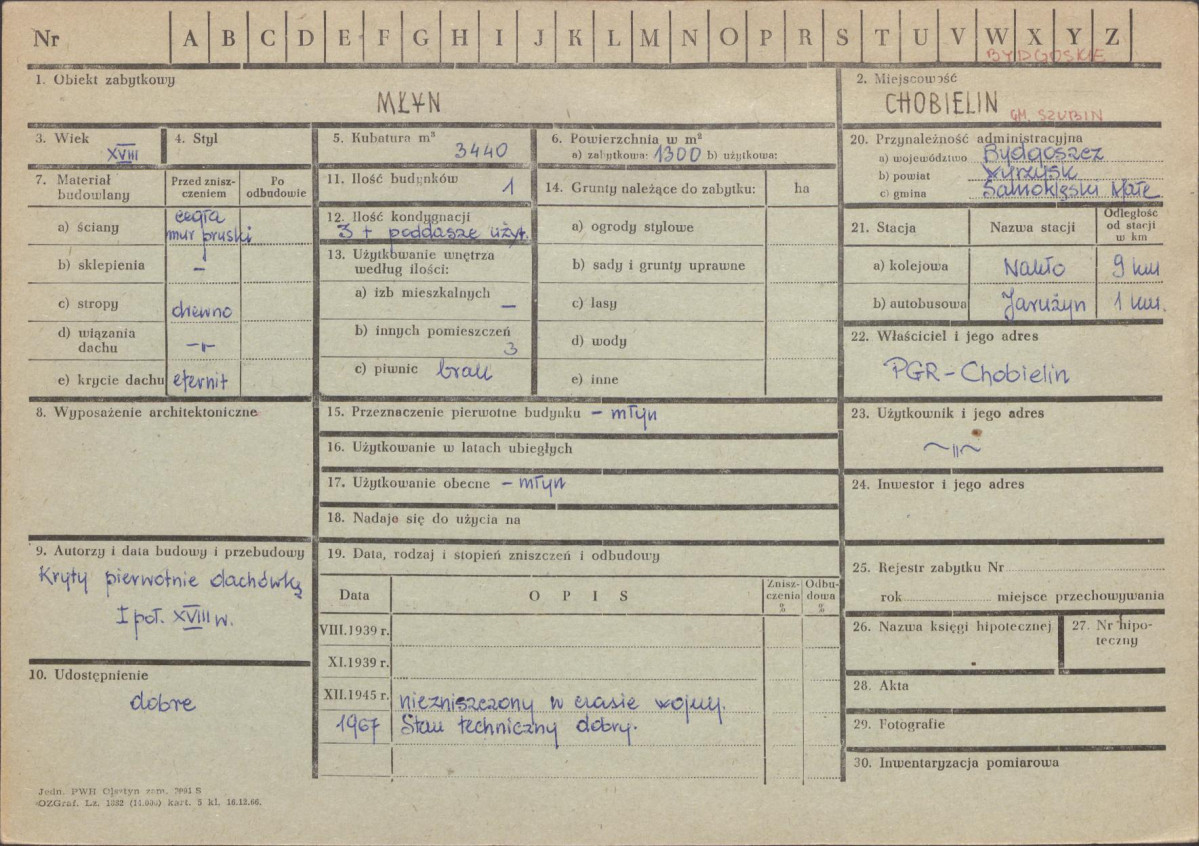 Nr A B C D E F G H I J K L M N O P R S T U V W X Y Z
BYDGOSKIE
1. Obiekt zabytkowy
MŁYN
2. Miejscowość
CHOBIELIN
GM. SZUBIN
3. Wiek
XVIII
4. Styl
5. Kubatura m³
3440
6. Powierzchnia w m²
a) zabytkowa: 1300 b) użytkowa:
7. Materiał budowlany
Przed znisz-
czeniem
Po
odbudowie
a) ściany
cegła
mur pruski
b) sklepienia –
c) stropy drewno
d) wiązania
dachu –"–
e) krycie dachu eternit
8. Wyposażenie architektoniczne
9. Autorzy i data budowy i przebudowy
Kryty pierwotnie dachówką
I poł. XVIII w.
10. Udostępnienie
dobre
11. Ilość budynków
1
12. Ilość kondygnacji
3 + poddasze użyt.
13. Użytkowanie wnętrza
według ilości:
a) izb mieszkalnych
–
b) innych pomieszczeń
3
c) piwnic brak
14. Grunty należące do zabytku:
ha
a) ogrody stylowe
b) sady i grunty uprawne
c) lasy
d) wody
e) inne
15. Przeznaczenie pierwotne budynku – młyn
16. Użytkowanie w latach ubiegłych
17. Użytkowanie obecne – młyn
18. Nadaje się do użycia na
19. Data, rodzaj i stopień zniszczeń i odbudowy
Data
O P I S
Znisz-
czenia
%
Odbu-
dowa
%
VIII.1939 r.
XI.1939 r.
XII.1945 r. niezniszczony w czasie wojny.
1967 Stan techniczny dobry.
20. Przynależność administracyjna
a) województwo Bydgoszcz
b) powiat Wyrzysk
c) gmina Samoklęski Małe
21. Stacja
Nazwa stacji
Odległość
od stacji
w km
a) kolejowa Nakło 9 km
b) autobusowa Jarużyn 1 km.
22. Właściciel i jego adres
PGR – Chobielin
23. Użytkownik i jego adres
~"~
24. Inwestor i jego adres
25. Rejestr zabytku Nr
rok miejsce przechowywania
26. Nazwa księgi hipotecznej
27. Nr hipo-
teczny
28. Akta
29. Fotografie
30. Inwentaryzacja pomiarowa
Jedn. PWH Olsztyn zam. S
OZGraf. Lz. 1382 kart. 5 kl. 16.12.66.